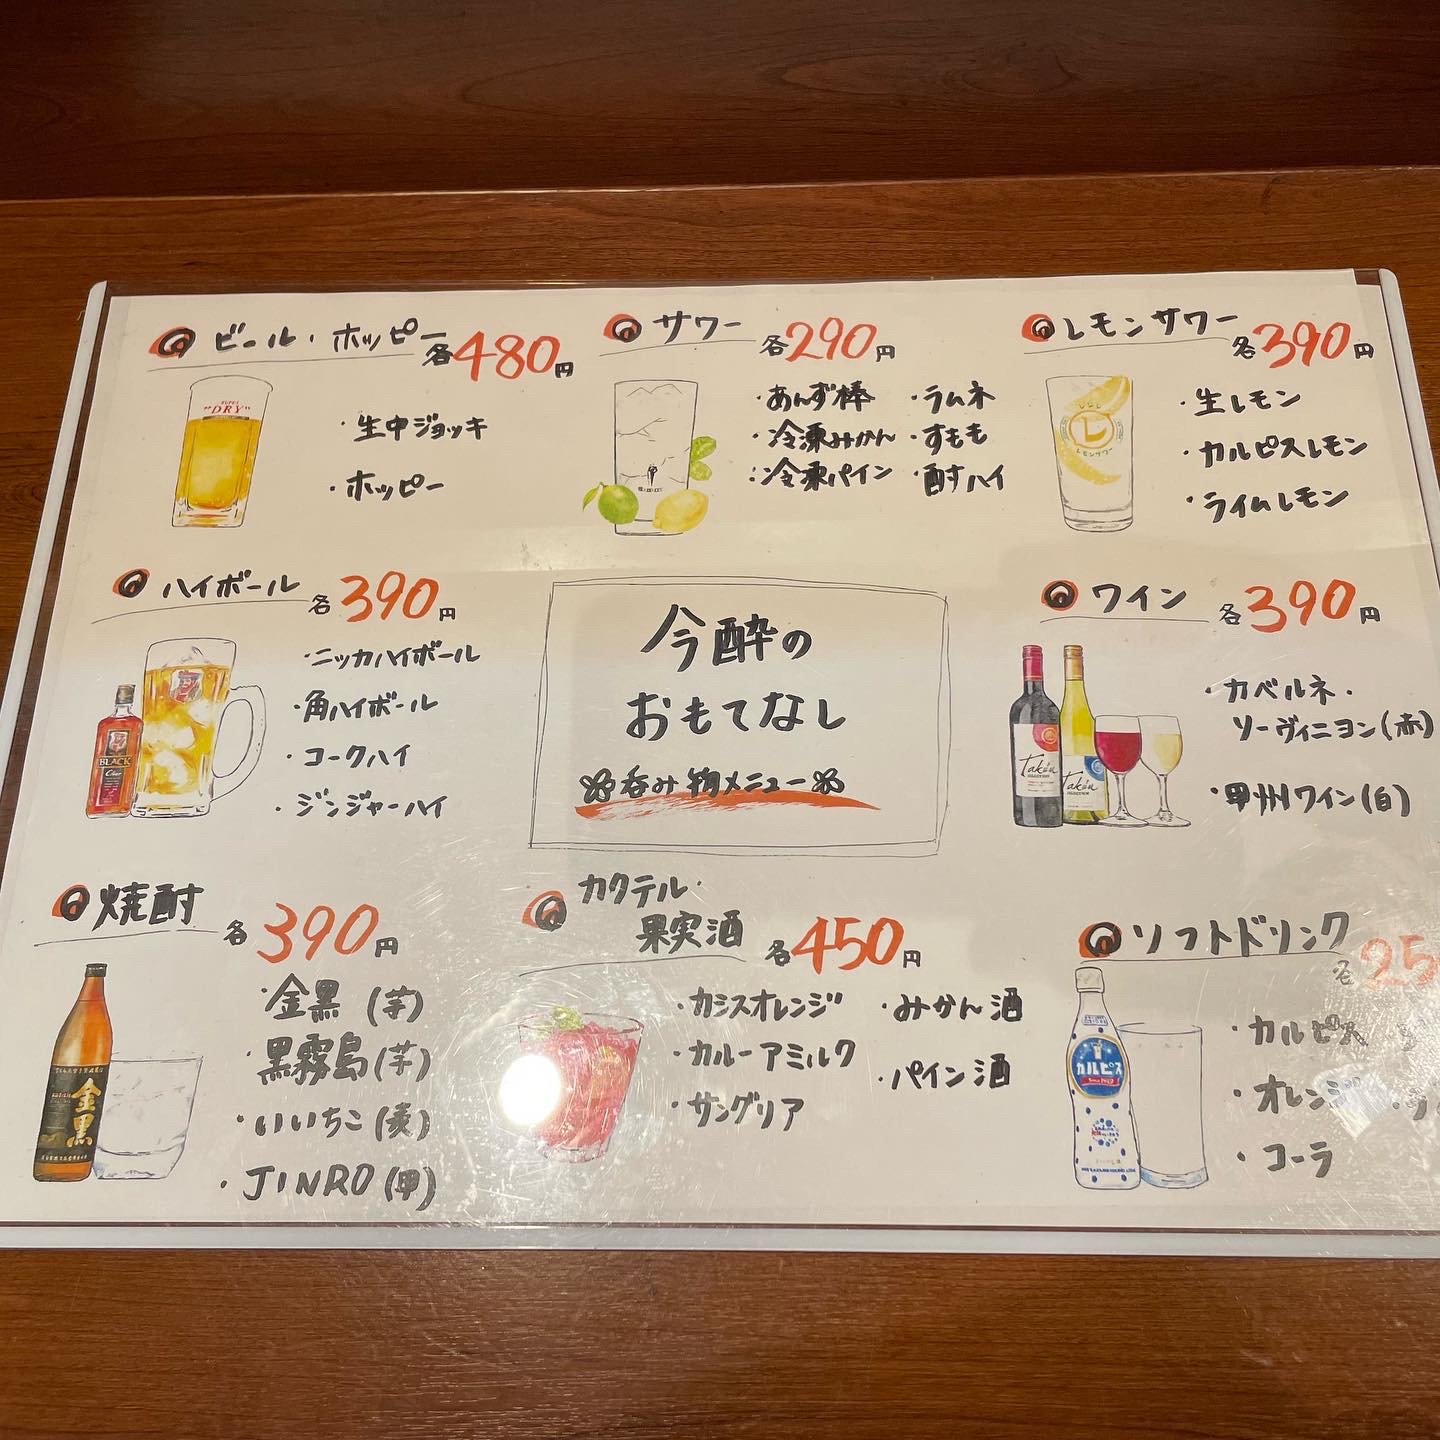 ビール・ホッピー 各480円
・生中ジョッキ
・ホッピー
サワー 各290円
・あんず棒 ・ラムネ
・冷凍みかん ・すもも
・冷凍パイン ・酎ハイ
レモンサワー 各390円
・生レモン
・カルピスレモン
・ライムレモン
ハイボール 各390円
・ニッカハイボール
・角ハイボール
・コークハイ
・ジンジャーハイ
今酔の
おもてなし
呑み物メニュー
ワイン 各390円
・カベルネ・
ソーヴィニヨン(赤)
・甲州ワイン(白)
焼酎 各390円
・金黒(芋)
・黒霧島(芋)
・いいちこ(麦)
・JINRO(甲)
カクテル・
果実酒 各450円
・カシスオレンジ ・みかん酒
・カルーアミルク ・パイン酒
・サングリア
ソフトドリンク
各25
・カルピス
・オレンジ
・コーラ
"DRY"
レ
レモンサワー
BLACK
Takún
Takún
金黒
カルピス